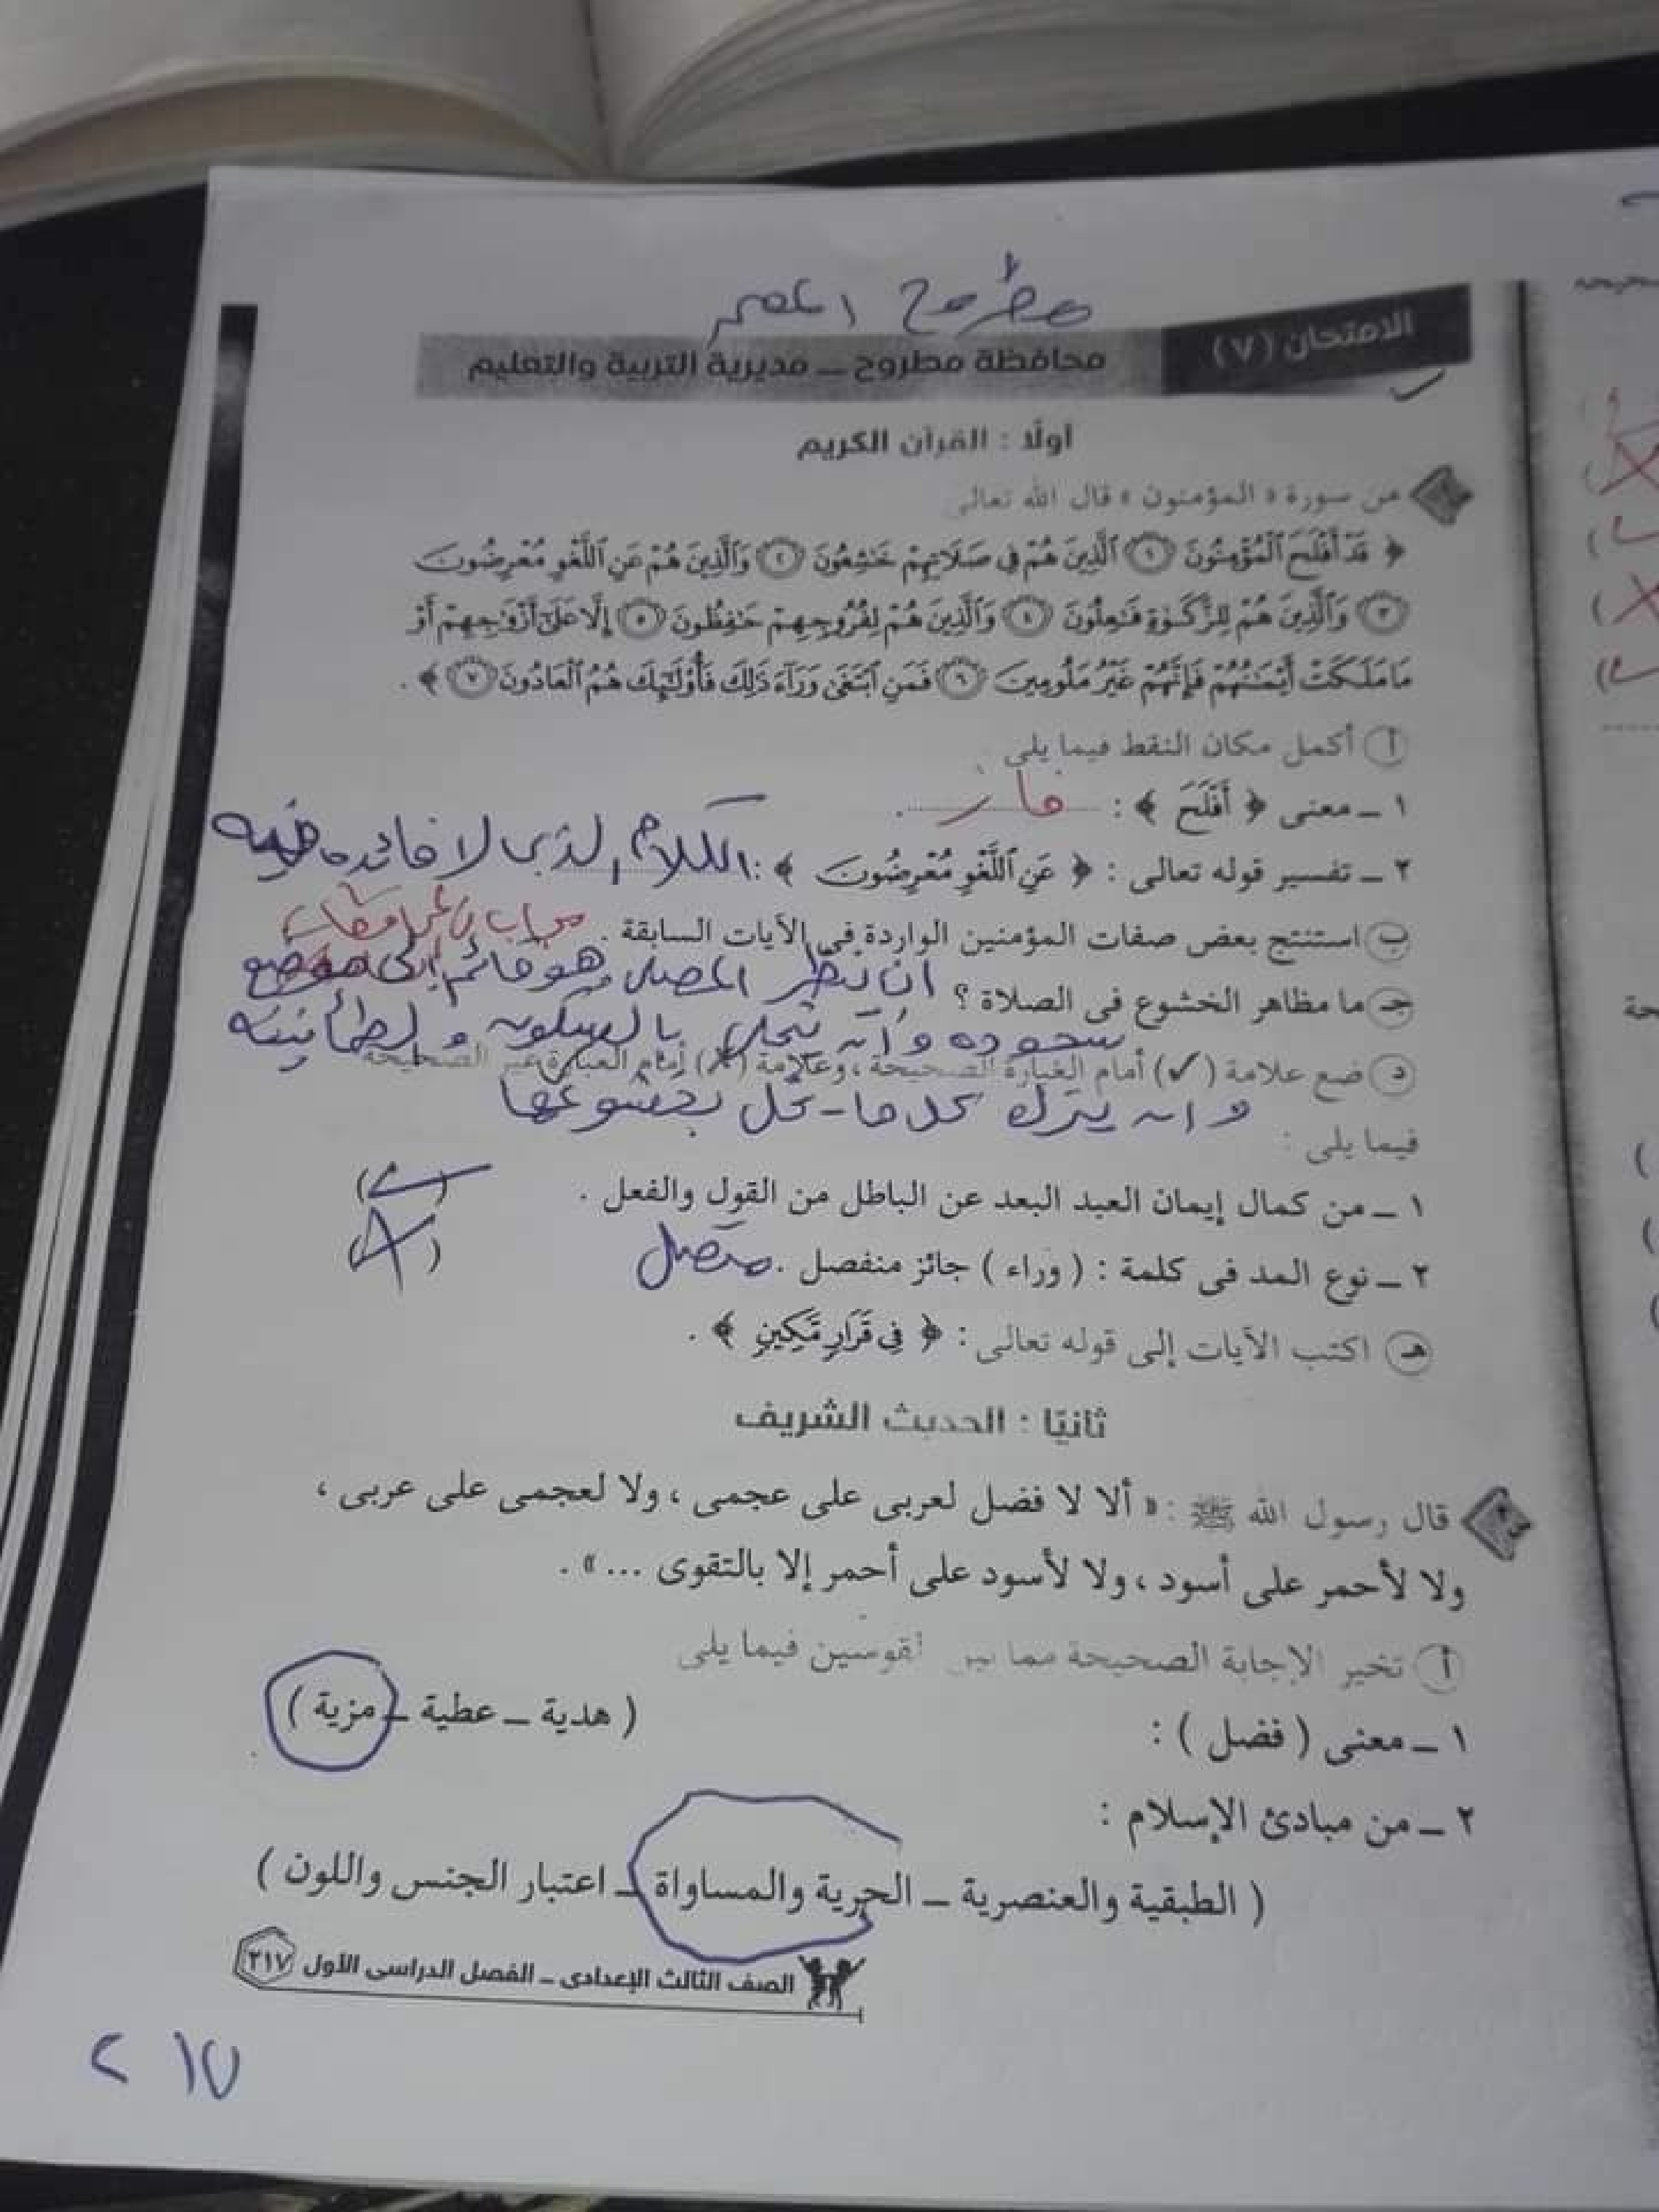 مطروح
الامتحان (٧)
محافظة مطروح ــ مديرية التربية والتعليم
أولًا : القرآن الكريم
من سورة « المؤمنون » قال الله تعالى
﴿ قَدْ أَفْلَحَ ٱلْمُؤْمِنُونَ ١ ٱلَّذِينَ هُمْ فِى صَلَاتِهِمْ خَٰشِعُونَ ٢ وَٱلَّذِينَ هُمْ عَنِ ٱللَّغْوِ مُعْرِضُونَ
٣ وَٱلَّذِينَ هُمْ لِلزَّكَوٰةِ فَٰعِلُونَ ٤ وَٱلَّذِينَ هُمْ لِفُرُوجِهِمْ حَٰفِظُونَ ٥ إِلَّا عَلَىٰٓ أَزْوَٰجِهِمْ أَوْ
مَا مَلَكَتْ أَيْمَٰنُهُمْ فَإِنَّهُمْ غَيْرُ مَلُومِينَ ٦ فَمَنِ ٱبْتَغَىٰ وَرَآءَ ذَٰلِكَ فَأُو۟لَٰٓئِكَ هُمُ ٱلْعَادُونَ ٧ ﴾ .
أ أكمل مكان النقط فيما يلى
١ ــ معنى ﴿ أَفْلَحَ ﴾ : فاز .
٢ ــ تفسير قوله تعالى : ﴿ عَنِ ٱللَّغْوِ مُعْرِضُونَ ﴾ : الكلام الذى لا فائده فيه
ب استنتج بعض صفات المؤمنين الواردة فى الآيات السابقة .
ان ينظر المصلى وهو قائم إلى موضع
جـ ما مظاهر الخشوع فى الصلاة ؟
سجوده وأن يتحلى بالسكون و الطمأنينه
د ضع علامة (✓) أمام العبارة الصحيحة ، وعلامة (✗) أمام العبارة غير الصحيحة
وان يترك كل ما يخل بخشوعها
فيما يلى :
١ ــ من كمال إيمان العبد البعد عن الباطل من القول والفعل . (✓)
٢ ــ نوع المد فى كلمة : ( وراء ) جائز منفصل . متصل (✗)
هـ اكتب الآيات إلى قوله تعالى : ﴿ فِى قَرَارٍ مَّكِينٍ ﴾ .
ثانيًا : الحديث الشريف
س٢ قال رسول الله ﷺ : « ألا لا فضل لعربى على عجمى ، ولا لعجمى على عربى ،
ولا لأحمر على أسود ، ولا لأسود على أحمر إلا بالتقوى ... » .
أ تخير الإجابة الصحيحة مما بين القوسين فيما يلى
١ ــ معنى ( فضل ) : ( هدية ــ عطية ــ مزية )
٢ ــ من مبادئ الإسلام :
( الطبقية والعنصرية ــ الحرية والمساواة ــ اعتبار الجنس واللون )
الصف الثالث الإعدادى ــ الفصل الدراسى الأول ٢١٧
٢١٧